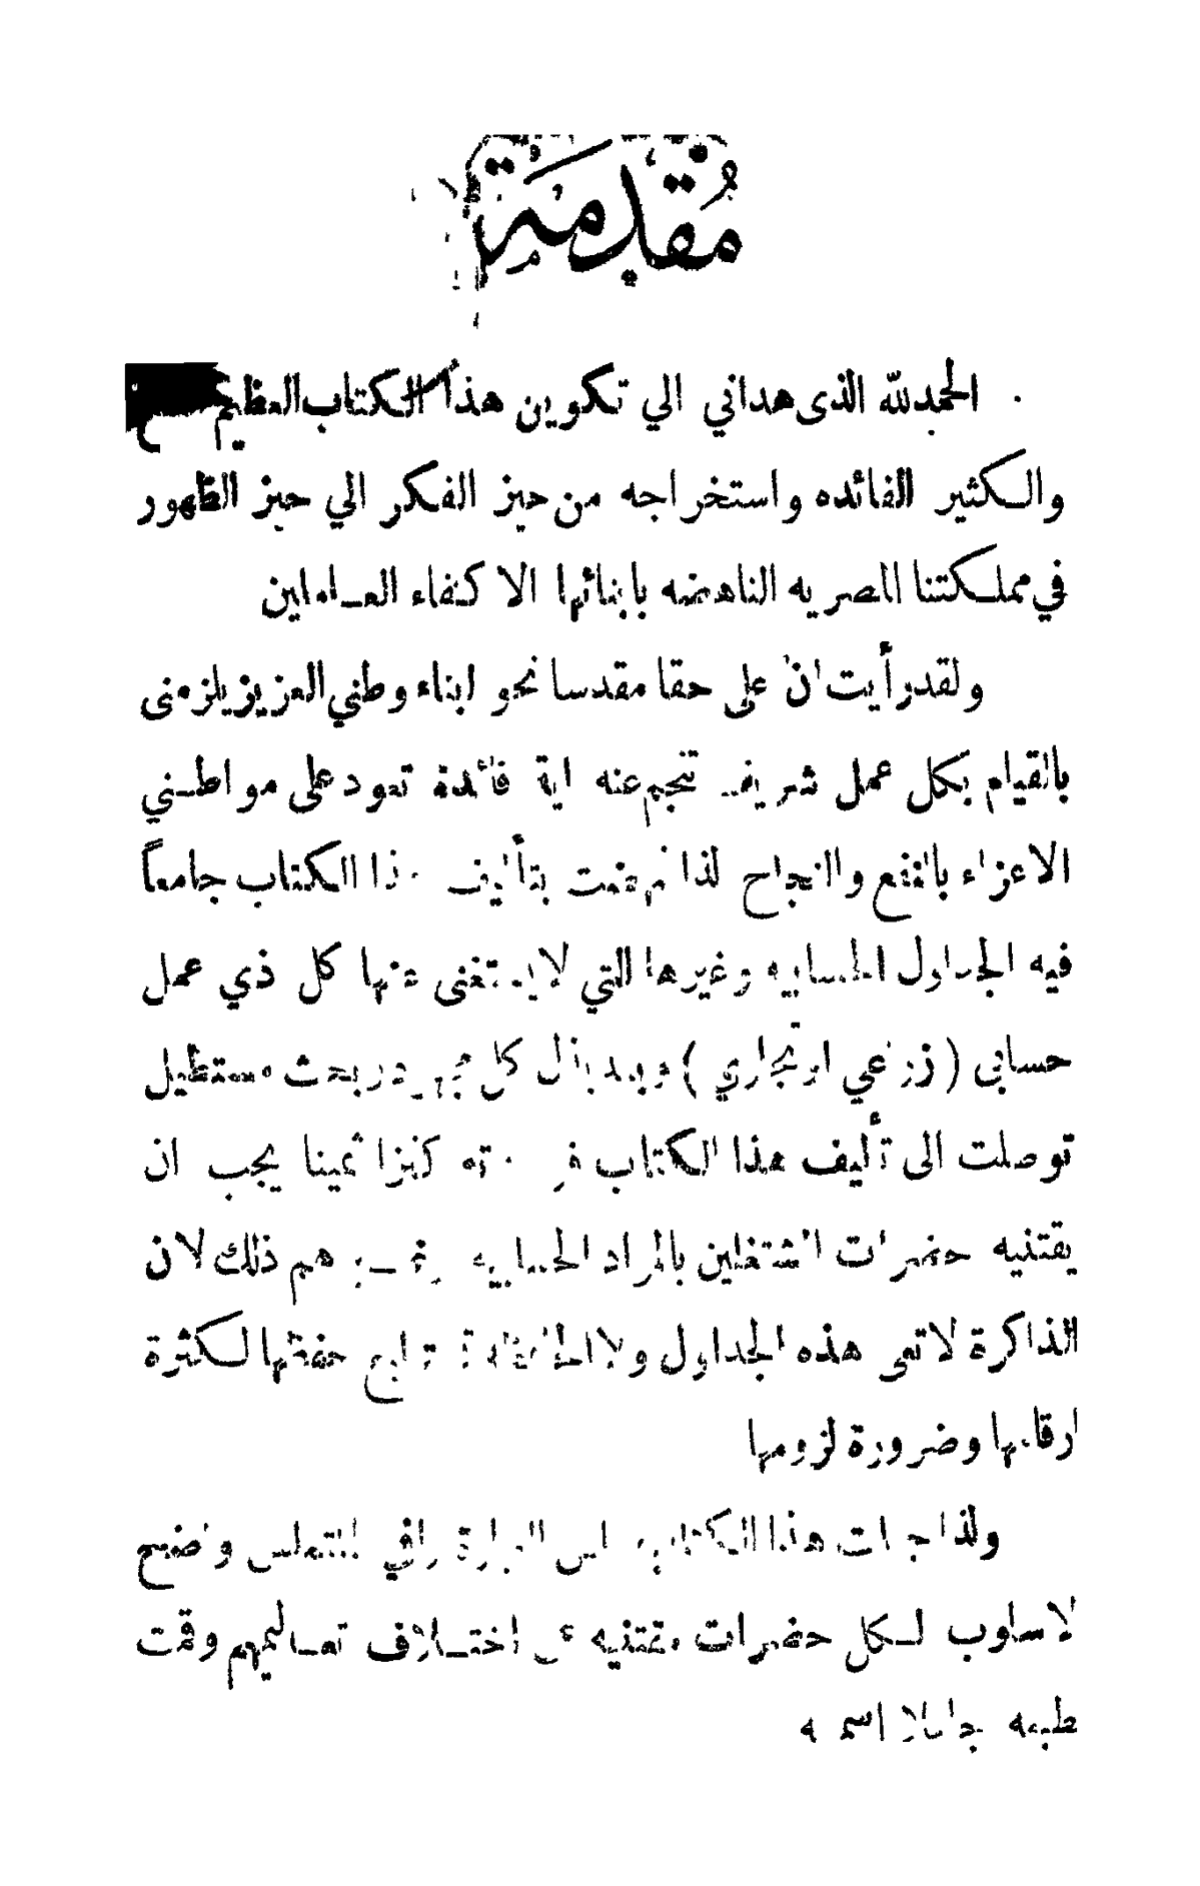 مُقَدِّمَة
الحمد لله الذى هداني الي تكوين هذا الكتاب العظيم
والكثير الفائده واستخراجه من حيز الفكر الي حيز الظهور
في مملكتنا المصريه الناهضه بابنائها الاكفاء العاملين
ولقد رأيت ان على حقا مقدسا نحو ابناء وطني العزيز يلزمنى
بالقيام بكل عمل شريف تنجم عنه اية فائدة تعود على مواطني
الاعزاء بالنفع والنجاح لذا نهضت بتأليف هذا الكتاب جامعاً
فيه الجداول الحسابيه وغيرها التي لايستغنى عنها كل ذي عمل
حسابى ( زراعي او تجاري ) وبعد بذل كل مجهود وبحث مستطيل
توصلت الى تأليف هذا الكتاب كنزا ثمينا يجب ان
يقتنيه حضرات المشتغلين بالمواد الحسابيه هم ذلك لان
الذاكرة لاتعى هذه الجداول ولا الحافظة تستطيع حفظها لكثرة
ارقامها وضرورة لزومها
ولذا جاءت هذا الكتاب سلس العبارة راقي واضح
الاسلوب لكل حضرات مقتنيه على اختلاف تعاليمهم وقمت
بطبعه جاعلا اسمه